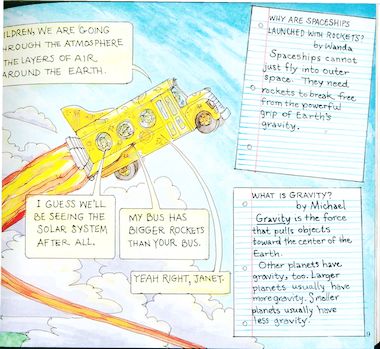 ILDREN, WE ARE GOING
HROUGH THE ATMOSPHERE
THE LAYERS OF AIR
AROUND THE EARTH.
WHY ARE SPACESHIPS
LAUNCHED WITH ROCKETS?
by Wanda
Spaceships cannot
just fly into outer
space. They need
rockets to break free
from the powerful
grip of Earth's
gravity.
I GUESS WE'LL
BE SEEING THE
SOLAR SYSTEM
AFTER ALL.
MY BUS HAS
BIGGER ROCKETS
THAN YOUR BUS.
YEAH RIGHT, JANET.
WHAT IS GRAVITY?
by Michael
Gravity is the force
that pulls objects
toward the center of the
Earth.
Other planets have
gravity, too. Larger
planets usually have
more gravity. Smaller
planets usually have
less gravity.
9